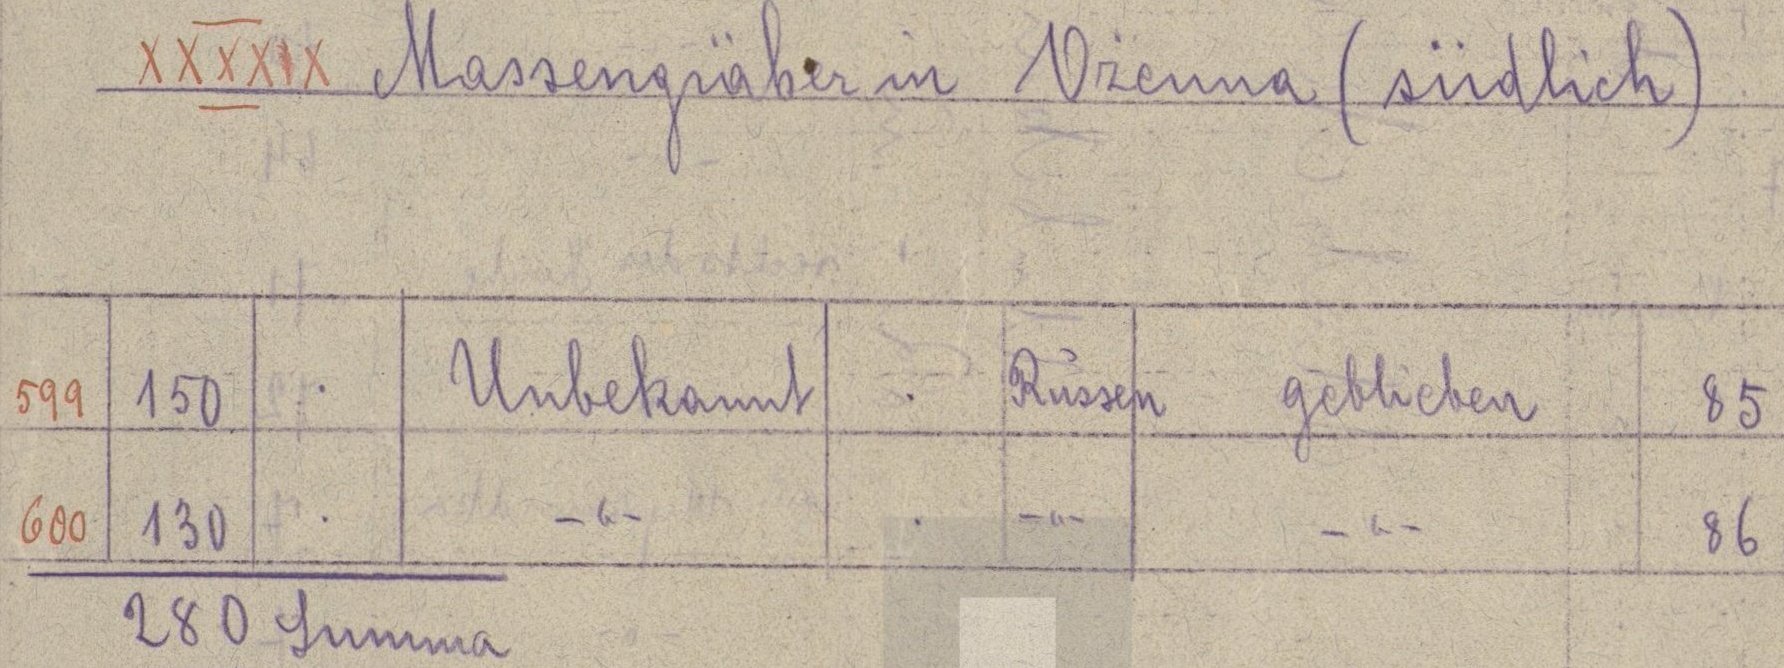 XXXXIX Massengräber in Ożenna (südlich)
599 150 . Unbekannt . Russen geblieben 85
600 130 . -"- . -"- -"- 86
280 Summa